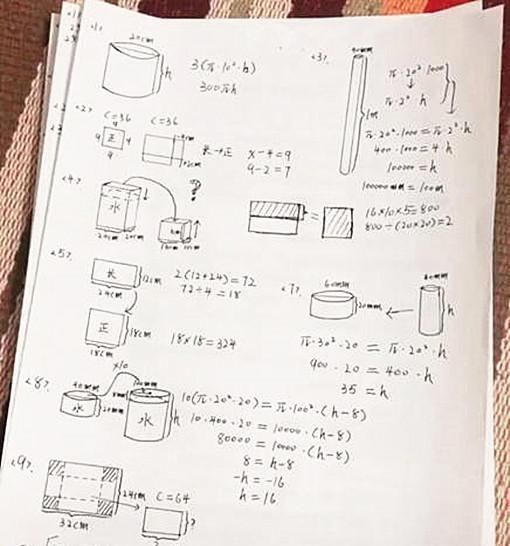 <1>.
20cm
h
3(π·10²·h)
300πh
<2>.
C=36
C=36
9
9
正
9
长→正
x-4=9
9-2=7
<3>.
1m
π·20²·1000
π·2²·h
π·20²·1000=π·2²·h
400·1000=4·h
100000=h
100000mm=100m
<4>.
水
?
20cm
20cm
10cm
=
16×10×5=800
800÷(20×20)=2
<5>.
长
12cm
24cm
2(12+24)=72
72÷4=18
正
18cm
18cm
18×18=324
<7>.
60mm
20mm
40mm
h
π·30²·20=π·20²·h
900·20=400·h
35=h
<8>.
×10
40mm
20mm
水
8mm
水
h
10(π·20²·20)=π·100²·(h-8)
10·400·20=10000·(h-8)
80000=10000·(h-8)
8=h-8
-h=-16
h=16
<9>.
24cm
32cm
C=64
?